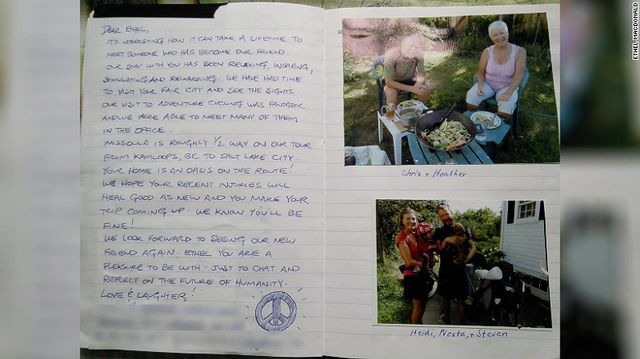 DEAR ETHEL,
ITS INTERESTING HOW IT CAN TAKE A LIFETIME TO
MEET SOMEONE WHO HAS BECOME OUR FRIEND.
OUR STAY WITH YOU HAS BEEN RELAXING, INSPIRING,
STIMULATING AND REWARDING. WE HAVE HAD TIME
TO VISIT YOUR FAIR CITY AND SEE THE SIGHTS.
OUR VISIT TO ADVENTURE CYCLING WAS FANTASTIC
AND WE WERE ABLE TO MEET MANY OF THEM
IN THE OFFICE.
MISSOULA IS ROUGHLY 1/2 WAY ON OUR TOUR
FROM KAMLOOPS, BC TO SALT LAKE CITY.
YOUR HOME IS AN OASIS ON THE ROUTE!
WE HOPE YOUR RECENT INJURIES WILL
HEAL GOOD AS NEW AND YOU MAKE YOUR
TRIP COMING UP. WE KNOW YOU'LL BE
FINE!
WE LOOK FORWARD TO SEEING OUR NEW
FRIEND AGAIN. ETHEL YOU ARE A
PLEASURE TO BE WITH - JUST TO CHAT AND
REFLECT ON THE FUTURE OF HUMANITY.
LOVE & LAUGHTER!
Chris + Heather
Heidi, Nesta, + Steven
ETHEL MACDONALD